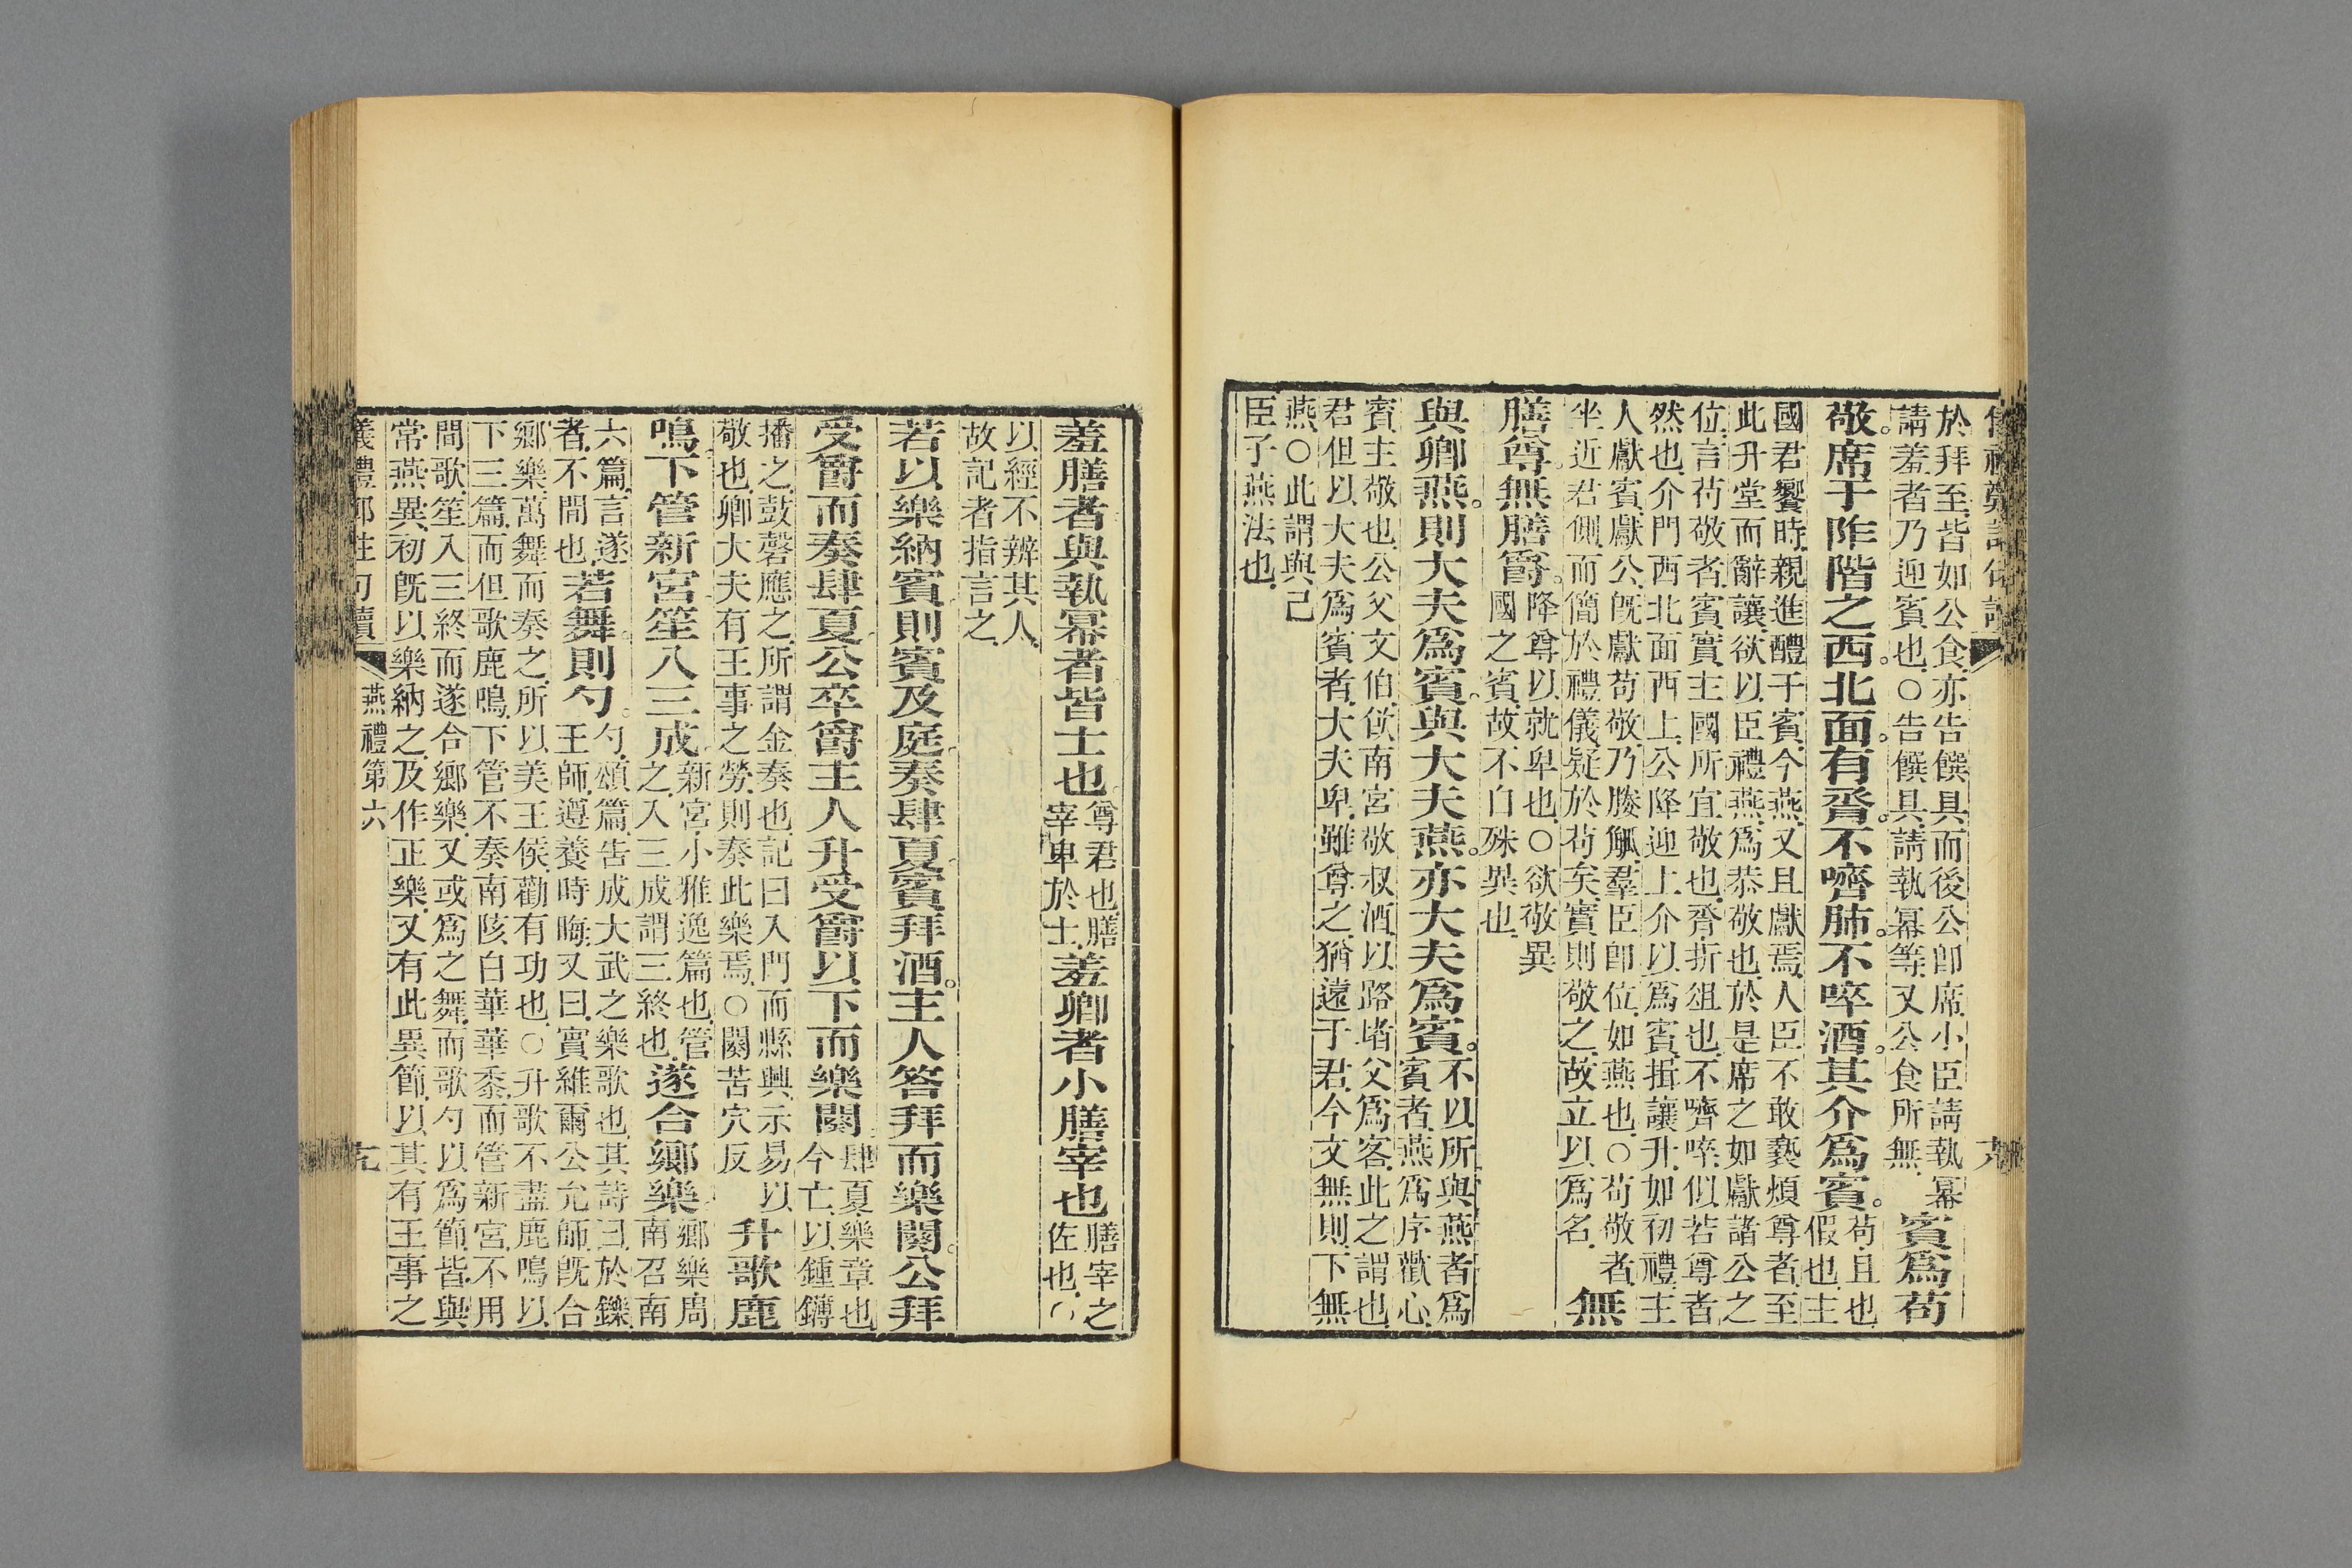 於拜至皆如公食亦告饌具而後公卽席小臣請執冪
請羞者乃迎賓也○告饌具請執冪等又公食所無
賓爲苟
敬。席于阼階之西。北面。有脀。不嚌肺。不啐酒。其介爲賓。
苟且也
假也主
國君饗時親進醴于賓今燕又且獻焉人臣不敢褻煩尊者至
此升堂而辭讓欲以臣禮燕爲恭敬也於是席之如獻諸公之
位言苟敬者賓實主國所宜敬也脀折俎也不嚌啐似若尊者
然也介門西北面西上公降迎上介以爲賓揖讓升如初禮主
人獻賓獻公旣獻苟敬乃媵觚羣臣卽位如燕也○苟敬者
坐近君側而簡於禮儀疑於苟矣實則敬之故立以爲名
無
膳尊。無膳爵。
降尊以就卑也○欲敬異
國之賓故不自殊異也
與卿燕。則大夫爲賓。與大夫燕。亦大夫爲賓。
不以所與燕者爲
賓者燕爲序歡心
賓主敬也公父文伯飲南宮敬叔酒以路堵父爲客此之謂也
君但以大夫爲賓者大夫卑雖尊之猶遠于君今文無則下無
燕○此謂與己
臣子燕法也
羞膳者與執冪者皆士也。
尊君也膳
宰卑於士
羞卿者小膳宰也
膳宰之
佐也○
以經不辨其人
故記者指言之
若以樂納賓則賓及庭奏肆夏賓拜酒。主人答拜而樂闋。公拜
受爵而奏肆夏公卒爵主人升受爵以下而樂闋
肆夏樂章也
今亡以鍾鎛
播之鼓磬應之所謂金奏也記曰入門而縣興示易以
敬也卿大夫有王事之勞則奏此樂焉○闋苦穴反
升歌鹿
鳴下管新宮笙入三成
新宮小雅逸篇也管
之入三成謂三終也
遂合鄉樂
鄉樂周
南召南
六篇言遂
者不間也
若舞。則勺。
勺頌篇告成大武之樂歌也其詩曰於鑠
王師遵養時晦又曰實維爾公允師旣合
鄉樂萬舞而奏之所以美王侯勸有功也○升歌不盡鹿鳴以
下三篇而但歌鹿鳴下管不奏南陔白華華黍而管新宮不用
間歌笙入三終而遂合鄉樂又或爲之舞而歌勺以爲節皆與
常燕異初旣以樂納之及作正樂又有此異節以其有王事之
燕禮第六